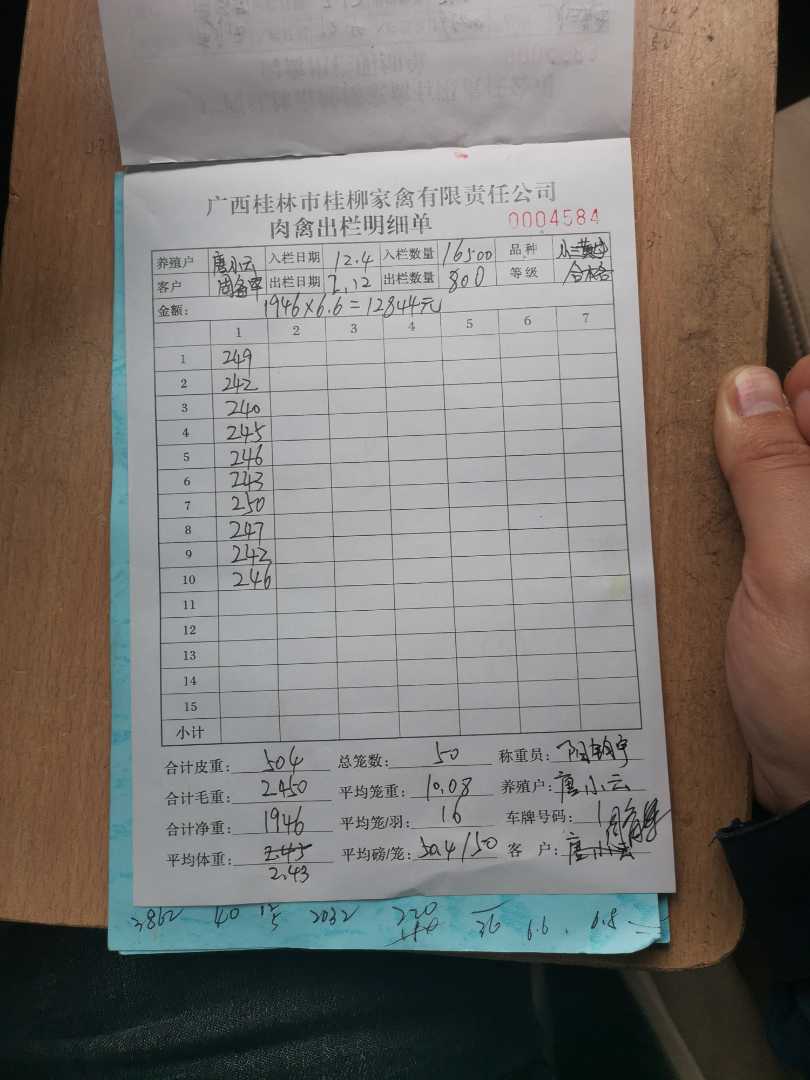 广西桂林市桂柳家禽有限责任公司
肉禽出栏明细单 0004584
养殖户 唐小云 入栏日期 12.4 入栏数量 16500 品种
客户 出栏日期 2.12 出栏数量 800 等级 合格
金额: 1946×6.6=12844元
1 2 3 4 5 6 7
1 249
2 242
3 240
4 245
5 246
6 243
7 250
8 247
9 242
10 246
11
12
13
14
15
小计
合计皮重: 504 总笼数: 50 称重员:
合计毛重: 2450 平均笼重: 10.08 养殖户: 唐小云
合计净重: 1946 平均笼/羽: 16 车牌号码:
平均体重: 2.45 平均磅/笼: 50.4/50 客 户: 唐小云
2.43
3862 40 2032 220 36 6.6. 6.8